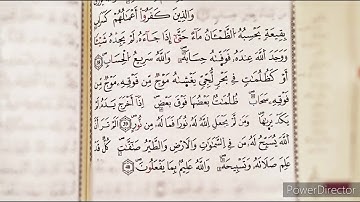 وَالَّذِينَ كَفَرُوٓا۟ أَعْمَٰلُهُمْ كَسَرَابٍۭ
بِقِيعَةٍ يَحْسَبُهُ الظَّمْـَٔانُ مَآءً حَتَّىٰٓ إِذَا جَآءَهُۥ لَمْ يَجِدْهُ شَيْـًٔا
وَوَجَدَ اللَّهَ عِندَهُۥ فَوَفَّىٰهُ حِسَابَهُۥ ۗ وَاللَّهُ سَرِيعُ الْحِسَابِ ٣٩
أَوْ كَظُلُمَٰتٍ فِى بَحْرٍ لُّجِّىٍّ يَغْشَىٰهُ مَوْجٌ مِّن فَوْقِهِۦ مَوْجٌ مِّن
فَوْقِهِۦ سَحَابٌ ۚ ظُلُمَٰتٌۢ بَعْضُهَا فَوْقَ بَعْضٍ إِذَآ أَخْرَجَ يَدَهُۥ لَمْ
يَكَدْ يَرَىٰهَا ۗ وَمَن لَّمْ يَجْعَلِ اللَّهُ لَهُۥ نُورًا فَمَا لَهُۥ مِن نُّورٍ ٤٠ أَلَمْ تَرَ أَنَّ
اللَّهَ يُسَبِّحُ لَهُۥ مَن فِى السَّمَٰوَٰتِ وَالْأَرْضِ وَالطَّيْرُ صَٰٓفَّٰتٍ ۖ كُلٌّ قَدْ
عَلِمَ صَلَاتَهُۥ وَتَسْبِيحَهُۥ ۗ وَاللَّهُ عَلِيمٌۢ بِمَا يَفْعَلُونَ ٤١
PowerDirector